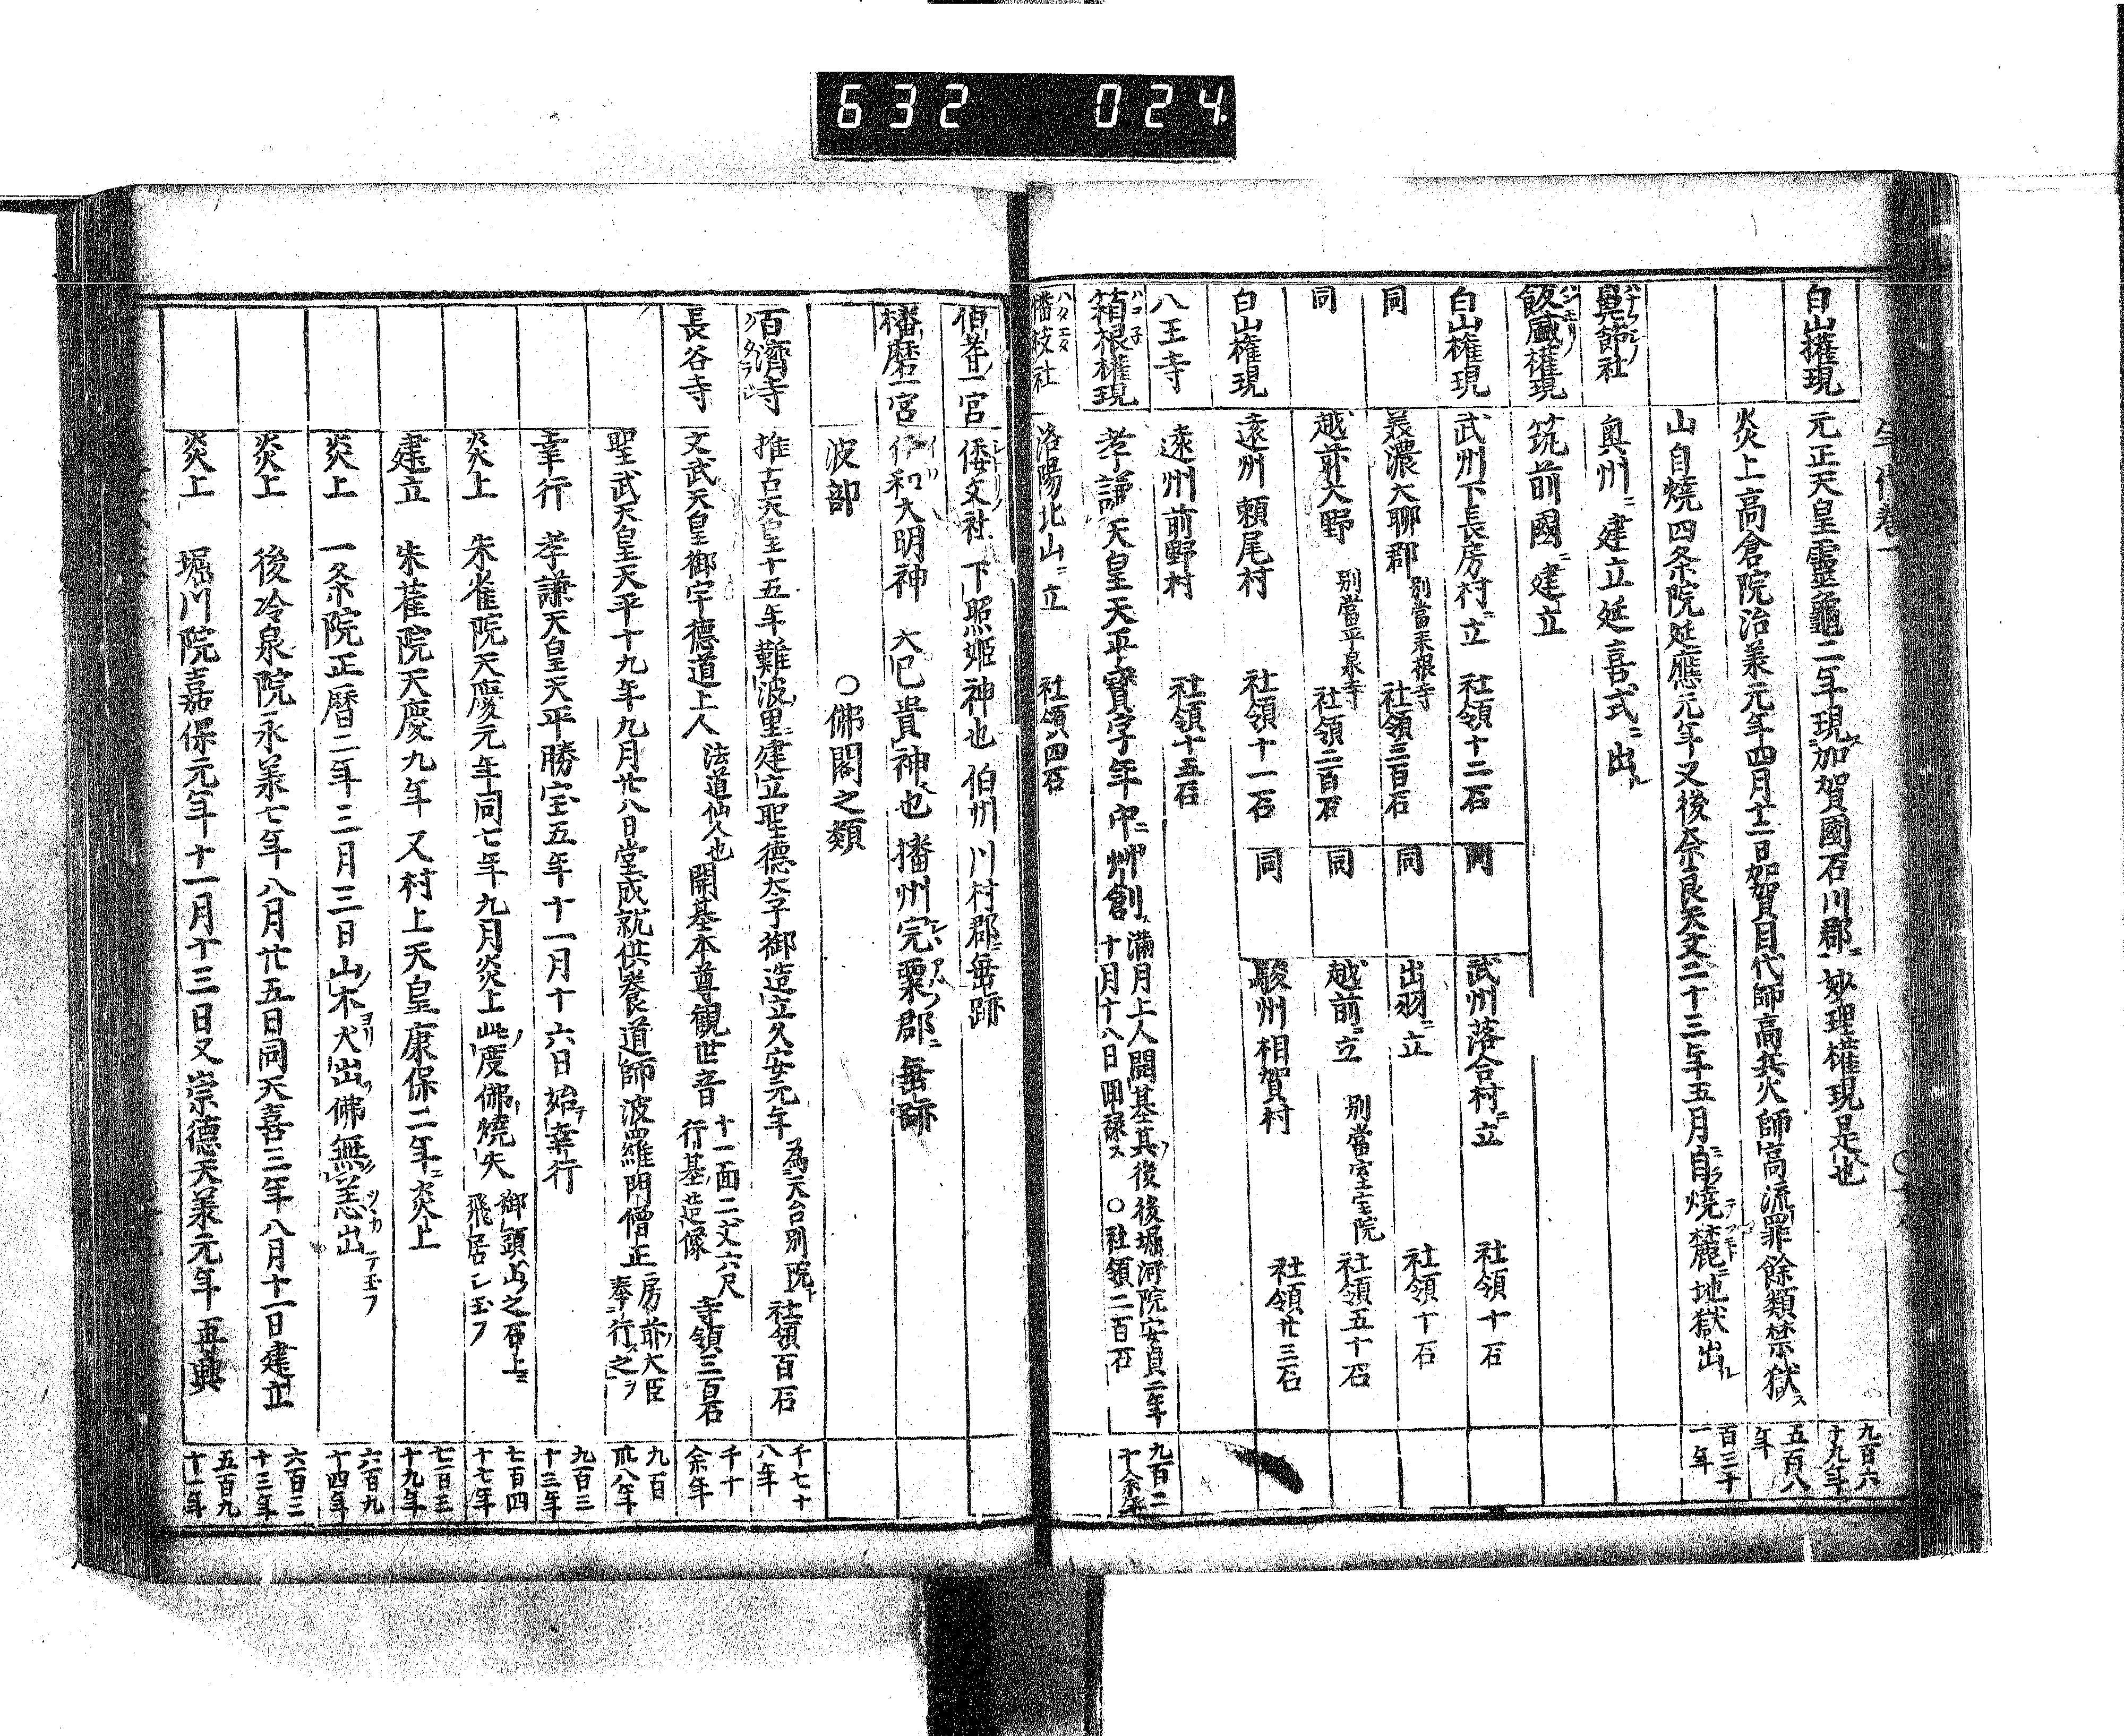 632 024
年代巻一
白山権現 元正天皇霊龜二年現ス加賀國石川郡ニ妙理権現是也 九百六十九年
炎上高倉院治承元年四月十二日加賀目代師高兵火師高流罪餘類禁獄ス 五百八年
山自燒四条院延應元年又後奈良天文二十三年五月ニ自燒麓ニ地獄出ル 百三十一年
奥州ニ建立延喜式ニ出ル
飯盛権現 筑前國ニ建立
白山権現 武州下長房村ニ立 社領十二石 同 武州落合村ニ立 社領十石
同 美濃大聊郡 別當 社領三百石 同 出羽ニ立 社領十石
同 越前大野 別當平泉寺 社領二百石 同 越前ニ立 別當室宝院 社領五十石
白山権現 遠州頼尾村 社領十一石 同 駿州相賀村 社領廿三石
八王寺 遠州前野村 社領十五石
箱根権現 孝謙天皇天平寶字年中ニ艸創ス 満月上人開基其後後堀河院安貞二年十月十八日回禄ス ○社領二百石 九百二十余年
幡枝社 洛陽北山ニ立 社領四石
伯耆一宮 倭文社 下照姫神也 伯州川村郡ニ垂跡
播磨一宮 伊和大明神 大已貴神也 播州完粟郡ニ垂跡
波部 ○佛閣之類
百濟寺 推古天皇十五年難波里ニ建立聖德太子御造立久安元年 為天台別院ト 社領百石 千七十八年
長谷寺 文武天皇御宇德道上人 法道仙人也 開基本尊観世音 十一面二丈六尺 行基造像 寺領三百石 千十余年
聖武天皇天平十九年九月廿八日堂成就供養道師波羅門僧正 房前大臣奉行之ヲ 九百卅八年
幸行 孝謙天皇天平勝宝五年十一月十六日始テ幸行 九百三十三年
炎上 朱雀院天慶元年同七年九月炎上此度佛燒失 御頭山之石上ニ飛居シ玉フ 七百四十七年
建立 朱雀院天慶九年又村上天皇康保二年ニ炎上 七百三十九年
炎上 一条院正暦二年三月三日山木ヨリ火出佛無恙出テ玉フ 六百九十四年
炎上 後冷泉院永羕七年八月廿五日同天喜二年八月十一日建立 六百三十三年
炎上 堀川院嘉保元年十一月十三日又崇德天羕元年再興 五百九十一年